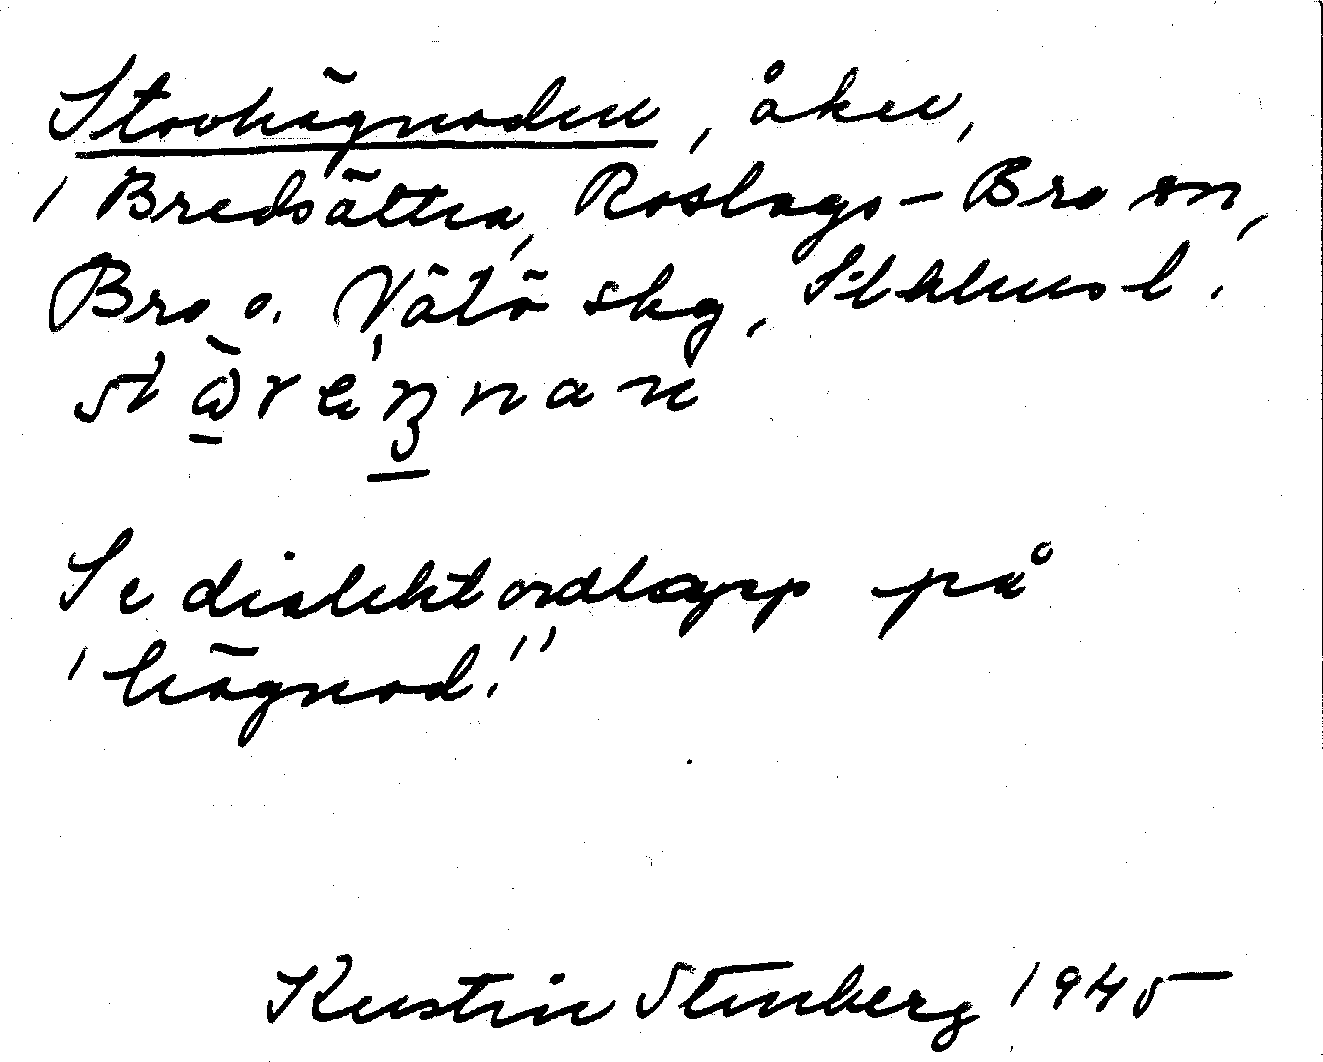 Storhägnaden, åker,
i Bredsättra, Roslags-Bro sn,
Bro o. Vätö skg, Sthlms l.
Se dialektordlapp på
"hägnad."
Kerstin Stenberg 1945